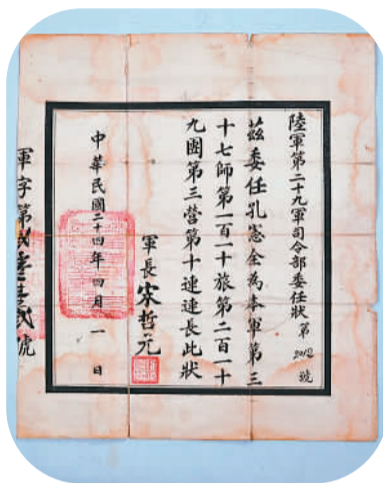 陸軍第二十九軍司令部委任狀 第2012號
茲委任孔憲全為本軍第三
十七師第一百一十旅第二百一十
九團第三營第十連連長此狀
軍長宋哲元
中華民國二十四年四月一日
軍字第弍零壹弍號